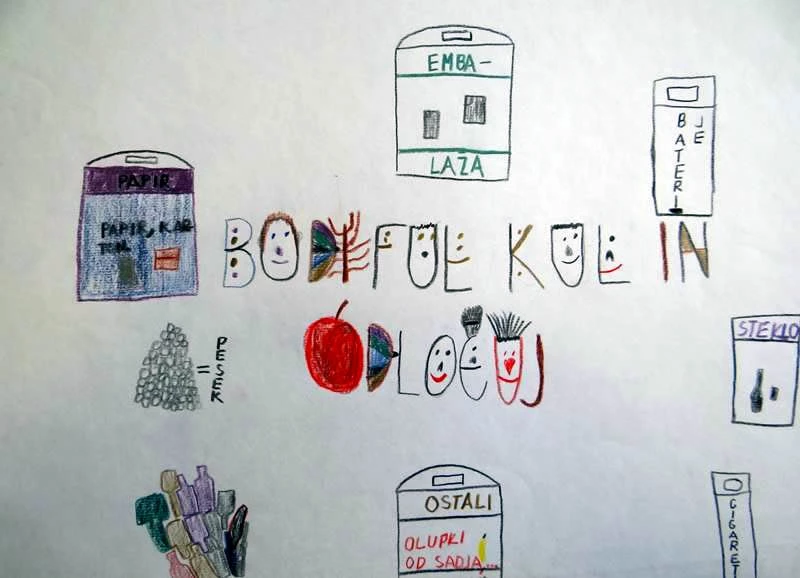 EMBA-
LAŽA
BATERI
JE
PAPIR
PAPIR, KAR
TON
BODI FUL KUL IN
ODLOČUJ
= PESEK
STEKLO
OSTALI
OLUPKI
OD SADJA...
CIGARET